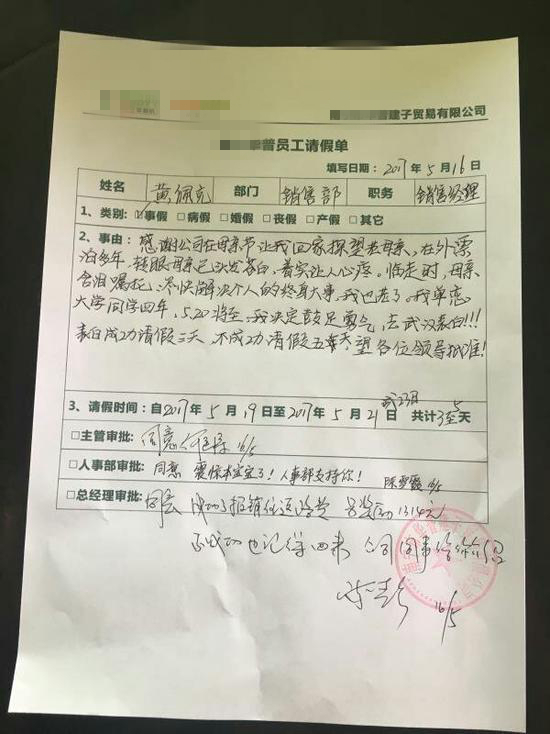 建子贸易有限公司
普员工请假单
填写日期：2017年5月16日
姓名 黄佩克 部门 销售部 职务 销售经理
1、类别：☑事假 □病假 □婚假 □丧假 □产假 □其它
2、事由：感谢公司在母亲节让我回家探望老母亲，在外漂
泊多年，转眼母亲已头发苍白，着实让人心疼。临走时，母亲
含泪嘱托：尽快解决个人的终身大事，我也老了。我单恋
大学同学四年，5.20将至，我决定鼓足勇气，去武汉表白!!!
表白成功请假三天，不成功请假五天，望各位领导批准！
或23日
3、请假时间：自2017年5月19日至2017年5月21日 共计3至5天
□主管审批：同意 16/5
□人事部审批：同意 震惊本宝宝了！人事部支持你！ 陈雪霞 16/5
□总经理审批：同意 成功了报销往返路费 另奖励1314元
不成功也记得回来 公司同事给你介绍
16/5